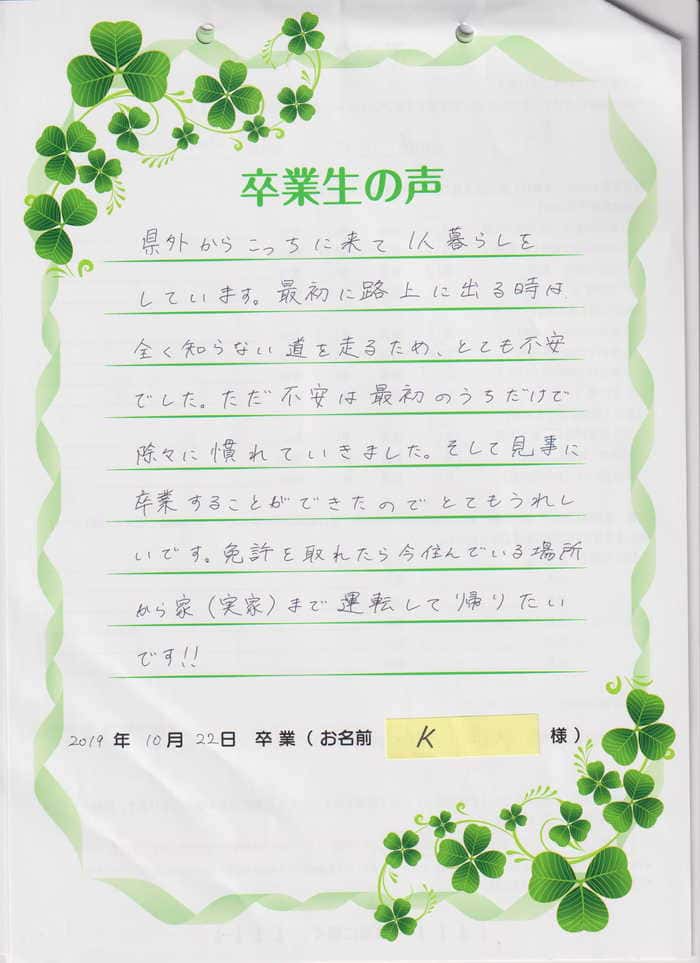 卒業生の声
県外からこっちに来て1人暮らしを
しています。最初に路上に出る時は、
全く知らない道を走るため、とても不安
でした。ただ不安は最初のうちだけで
除々に慣れていきました。そして見事に
卒業することができたのでとてもうれし
いです。免許を取れたら今住んでいる場所
から家(実家)まで運転して帰りたい
です!!
2019年10月22日 卒業(お名前 K 様)